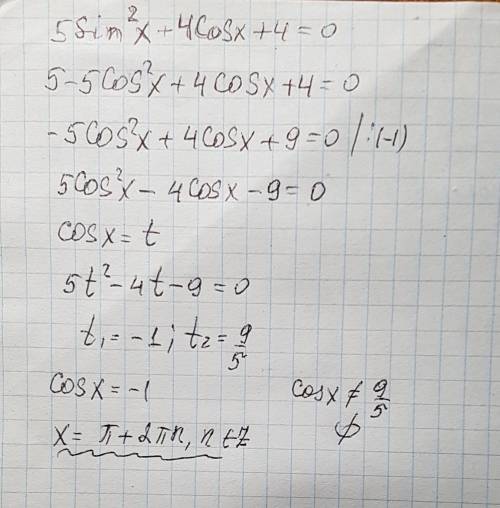 5Sin²x + 4Cosx + 4 = 0
5 - 5Cos²x + 4cosx + 4 = 0
-5cos²x + 4cosx + 9 = 0 / :(-1)
5cos²x - 4cosx - 9 = 0
cosx = t
5t² - 4t - 9 = 0
t₁ = -1; t₂ = 9/5
cosx = -1 cosx ≠ 9/5
x = π + 2πn, n ∈ Z ∅